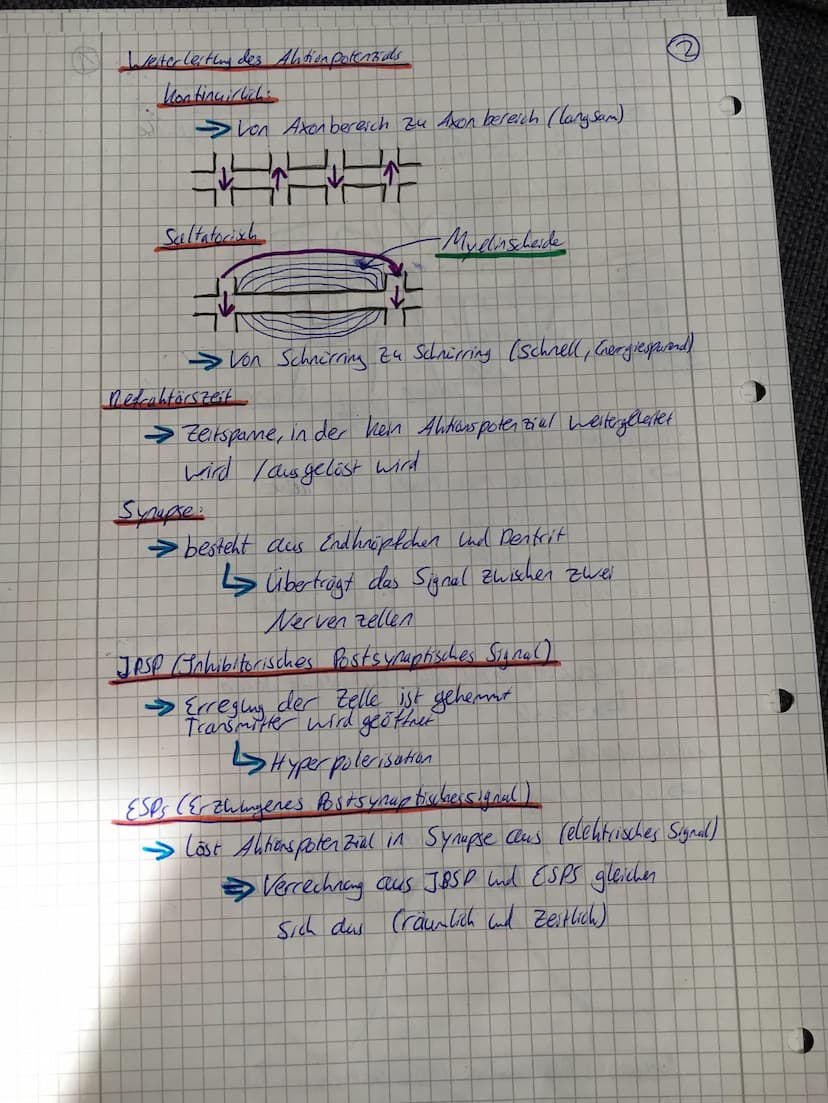 2
Weiterleitung des Aktionpotenzials
Kontinuirlich:
Von Axonbereich zu Axonbereich (langsam)
Saltatorisch
Myelinscheide
Von Schnürring zu Schnürring (schnell, Energiesparend)
Refraktärszeit
Zeitspanne, in der kein Aktionspotenzial weitergeleitet
wird / ausgelöst wird
Synapse:
besteht aus Endknöpfchen und Dentrit
Überträgt das Signal zwischen zwei
Nervenzellen
IPSP (Inhibitorisches Postsynaptisches Signal)
Erregung der Zelle ist gehemmt
Transmitter wird geöffnet
Hyperpolerisation
ESPs (Erzwungenes Postsynaptischessignal)
Löst Aktionspotenzial in Synapse aus (elektrisches Signal)
Verrechnung aus IPSP und ESPS gleichen
sich aus (räumlich und zeitlich)